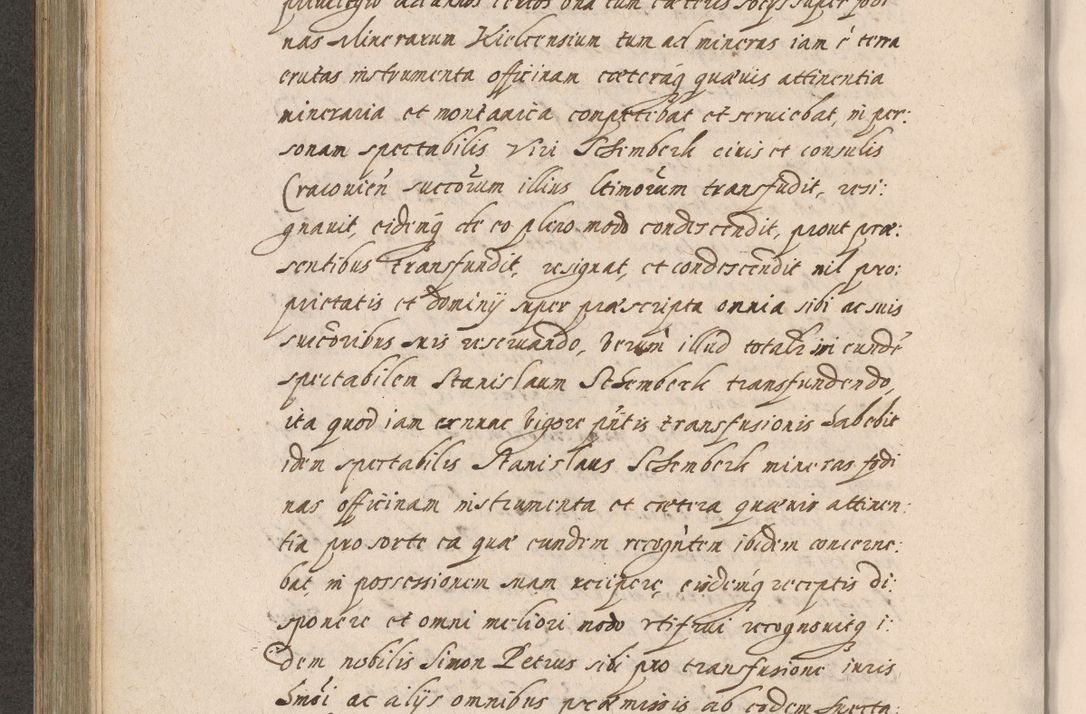 privilegio ad annos certos una cum cæteris socijs super fodi
nas Minerarum Kielcensium tum ad mineras iam é terra
erutas instrumenta officinam cæteraq́ quævis attinentia
mineraria et montanica competebat et serviebat, in per:
sonam spectabilis Viri Schemberk civis et consulis
Cracovień succorum illius ltimorum transfudit, resi:
gnavit, eidemq́ de eo pleno modo condescendit, prout præ:
sentibus transfundit, resignat, et condescendit nil pro:
prietatis et Dominij super præscripta omnia sibi ac suis
succoribus suis reservando, Verum illud totalr in eundē
spectabilem Stanislaum Schemberk transfundendo,
ita quod iam ex nunc vigore pn̄tis transfusionis habebit
idem spectabilis Stanislaus Schemberk mineras fodi
nas officinam instrumenta et cætera quævis attinen:
tia pro sorte ea quæ eundem recogn̄tem ibidem concerne:
bat, in possessionem suam recipere, eisdemq́ receptis di:
sponere et omni meliori modo utifrui recognovitq i:
dem nobilis Simon Petrus sibi pro transfusione iuris
hm̄oi ac alijs omnibus præmissis ab eodem specta: